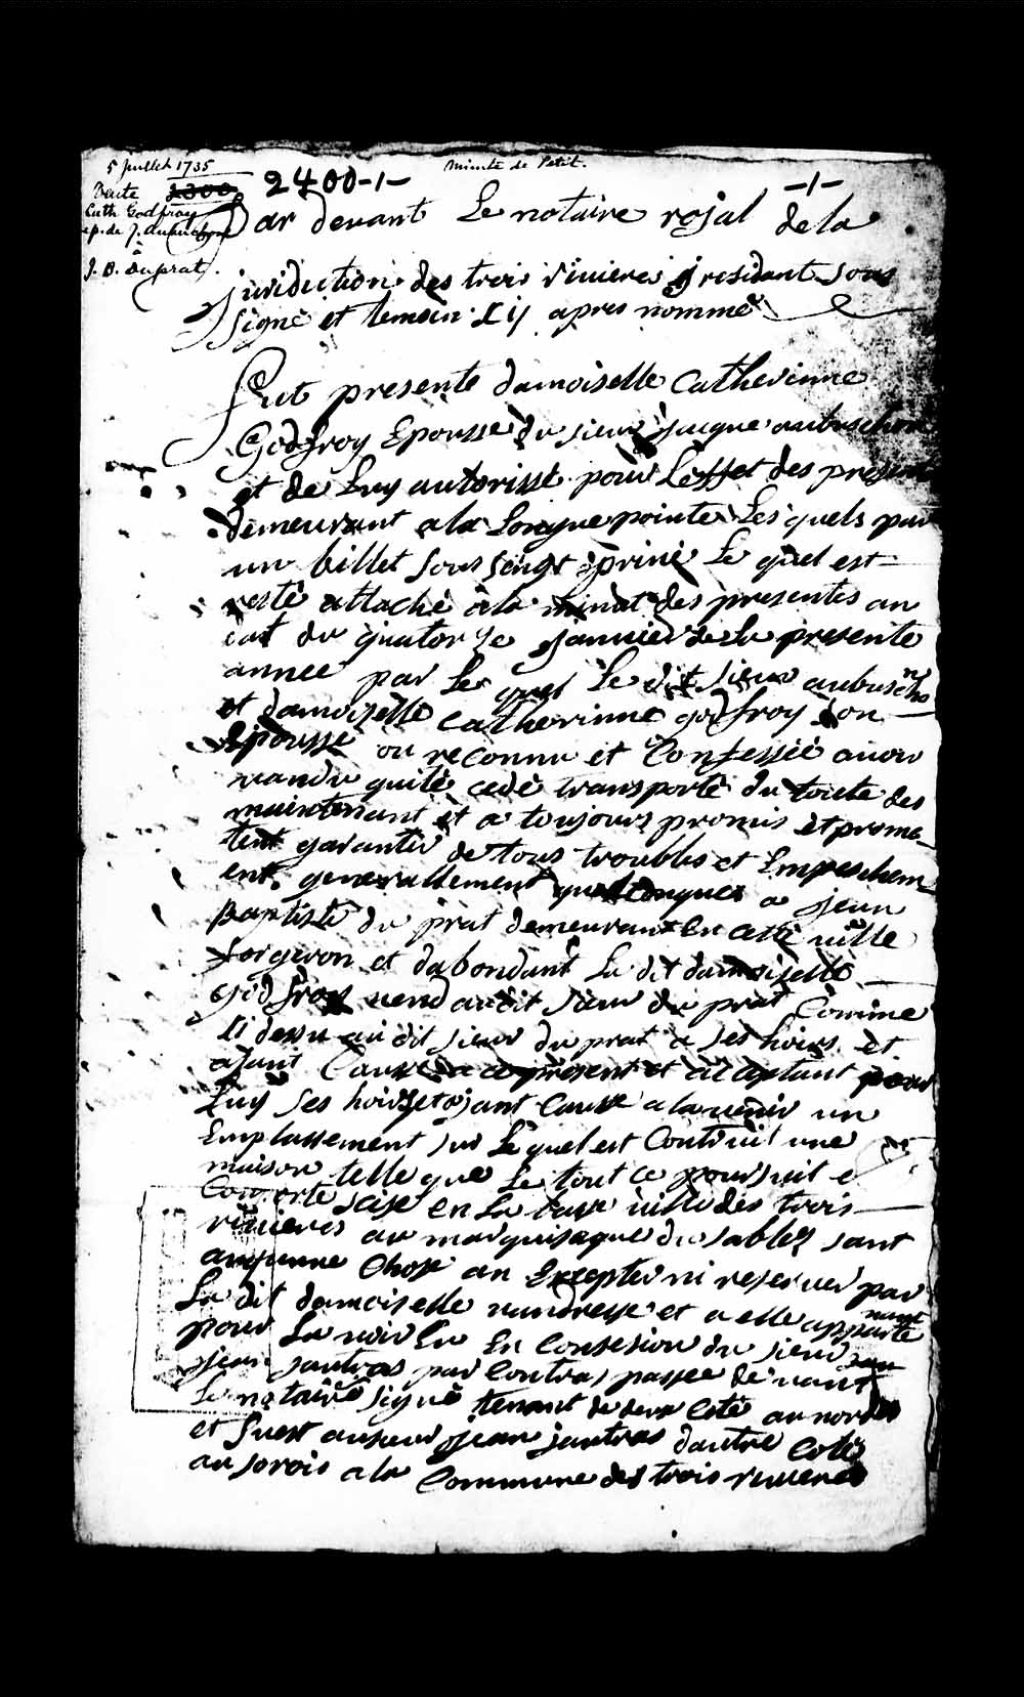 5 Juillet 1735
Minute de Petit.
Vente 2300 2400-1- -1-
Cath Godfroy
ep. de J. aubuchon
à
J. B. Duprat.
Par devant Le notaire rojal de la
juridiction des trois rivieres y residant sous
signé et temoin Cij apres nommé
fut presente damoiselle Catherinne
Godfroy Epousse du sieur jacque aubuschon
et de Luy autorissé pour Leffet des presente
demeurant a la Longue pointe Les quels par
un billet sous seingt priué Le quel est
resté attaché a la minut des presentes an
dat du quatorze januier de la presente
année par Le quel Le dit sieur aubuschon
et damoizelle Catherinne godfroy son
Epousse on reconnu et Confessée auoir
vandu quité cedé transporté du toute des
maintenant et a toujours promis et prome
tent garantir de tous troubles et Empeschem
ent generallement quelconques a jean
Baptiste du prat demeurant En cette uille
forgeron et dabondant La dit damoizelle
godfroy uend audit sieur du prat Comme
Ci dessu au dit sieur du prat a ses hoirs et
ajant Cause a ce present et acceptant pour
Luy ses hoirs et ajant Cause a lauenir un
Emplassement sur Le quel est Contruit une
maison telle que Le tout ce poursuit e
Comporte scise en La basse uille des trois
riuieres au marquisaque du sablez sant
aucunne Chose an Excepter ni reseruer par
La dit damoiselle uandresse et a elle apparte
nant
pour Lauoir Eu En Consesion du sieur
jean jautras par Contras passee deuant
Le notaire signé tenant de deux Coté au nordes
et suest ausieur jean jautras dautre Coté
au sorois a la Commune des trois riuieres